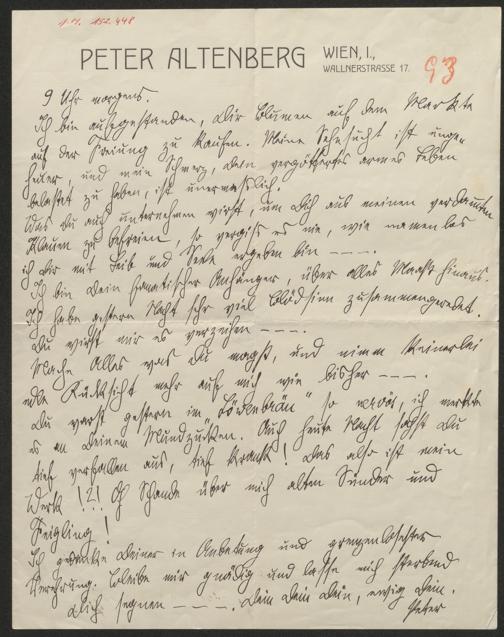 I.N. 152.448
PETER ALTENBERG WIEN, I.,
WALLNERSTRASSE 17.
93
9 Uhr morgens.
Ich bin aufgestanden, Dir Blumen auf dem Markte
auf der Freiung zu kaufen. Meine Sehnsucht ist unge-
heuer, und mein Schmerz, Dein vergöttertes armes Leben
belastet zu haben, ist unermesslich.
Was Du auch unternehmen wirst, um Dich aus meinen verdammten
Klauen zu befreien, so vergiss es nie, wie namenlos
ich Dir mit Leib und Seele ergeben bin — — — —.
Ich bin Dein fanatischer Anhänger über alles Maass hinaus.
Ich habe gestern Nacht sehr viel Blödsinn zusammengeredet.
Du wirst mir es verzeihen — — —.
Mache Alles was Du magst, und nimm keinerlei
edle Rücksicht mehr auf mich wie bisher — — —.
Du warst gestern im „Löwenbräu" so nervös, ich merkte
es an Deinem Mundzucken. Auch heute Nacht sahst Du
tief verfallen aus, tief krank! Das also ist mein
Werk !?! Oh Schande über mich alten Sünder und
Feigling!
Ich gedenke Deiner in Anbetung und grenzenlosester
Verehrung. Bleibe mir gnädig und lasse mich sterbend
Dich segnen — — — —. Dein Dein Dein, ewig Dein.
Peter